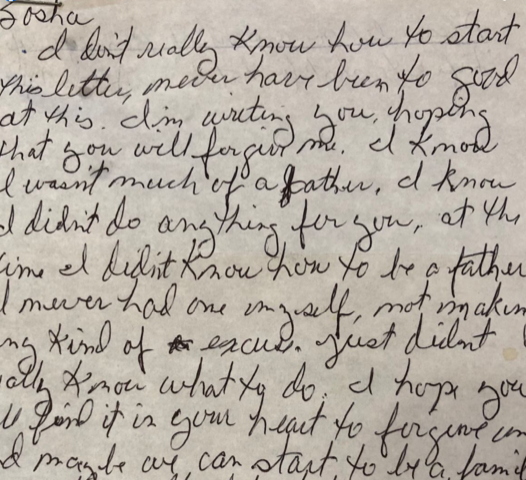 Sosha
I don't really know how to start
this letter, never have been to good
at this. I'm writing you, hoping
that you will forgive me. I know
I wasn't much of a father. I know
I didn't do anything for you, at the
time I didn't know how to be a father
I never had one myself, not makin
ny kind of excus. Just didnt
ally know what to do. I hope you
ll find it in your heart to forgive
d maybe we can start to be a famil